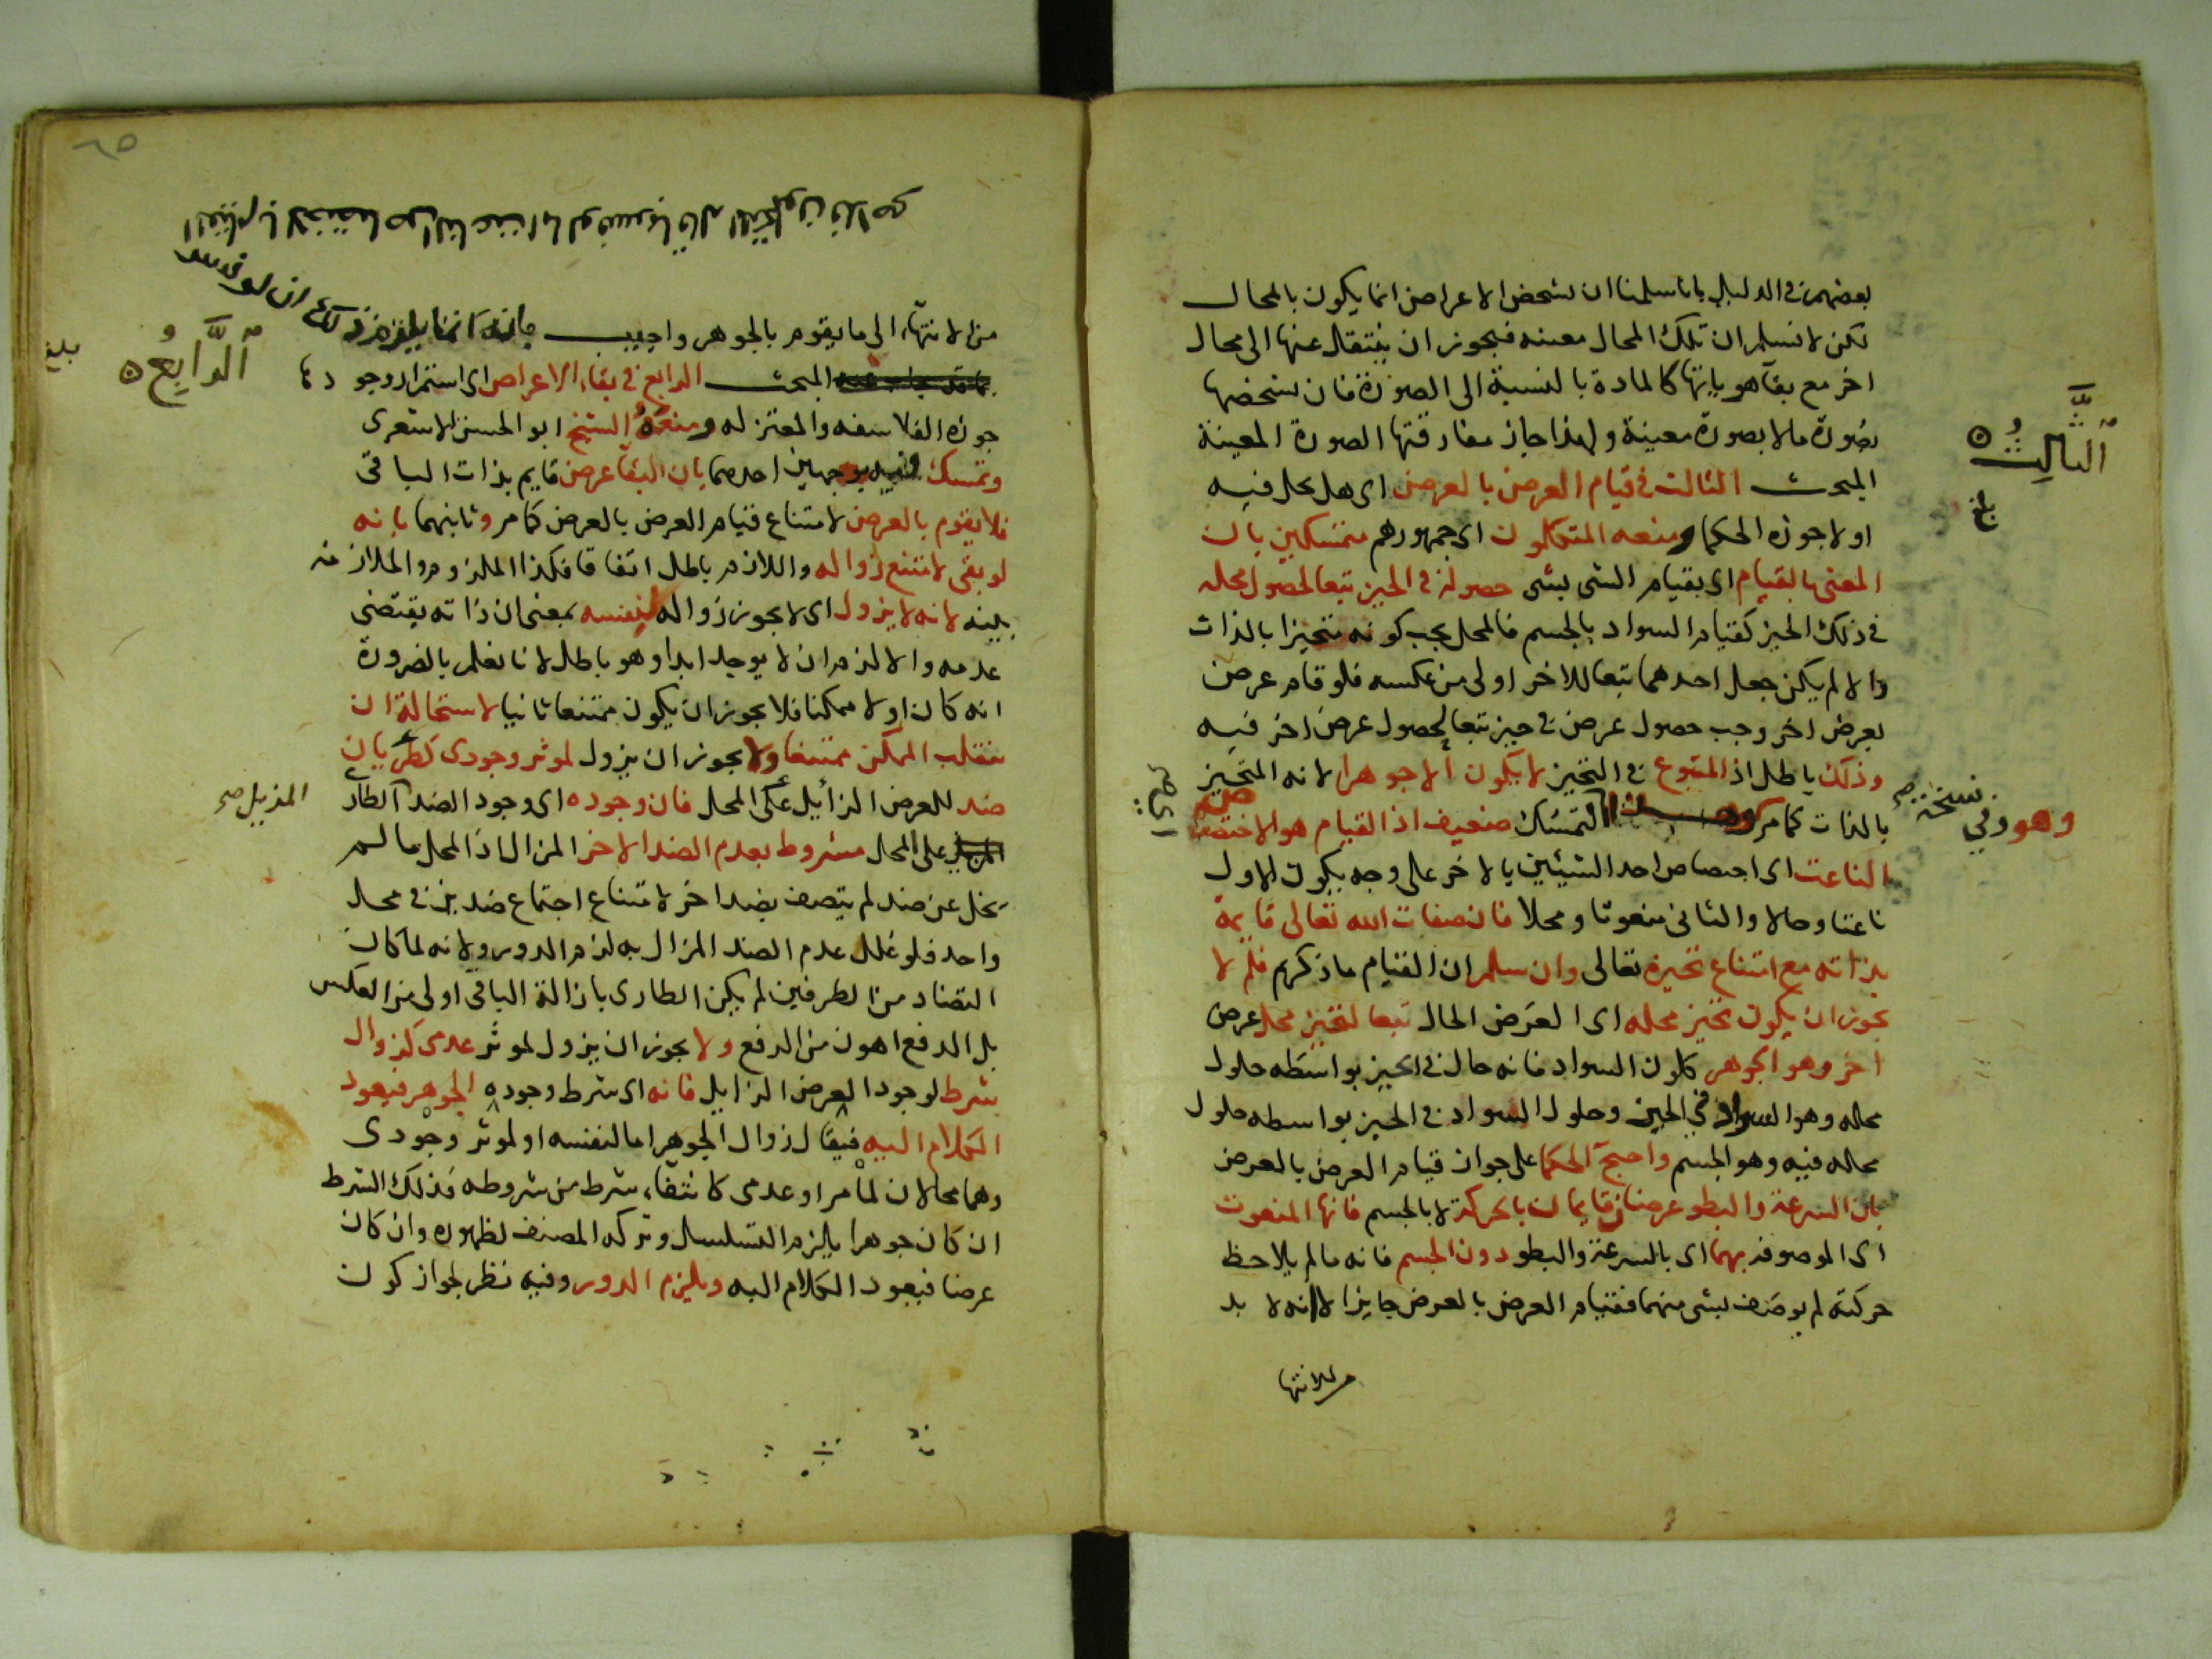 بعضهم في الدليل بانا سلمنا ان تشخص الاعراض انما يكون بالمحال
لكن لا نسلم ان تلك المحال معينه فيجوز ان ينتقل عنها الى محال
اخر مع بقآ هوياتها كالمادة بالنسبة الى الصورة فان تشخصها
بصورة ما لا بصورة معينة ولهذا جاز مفارقتها الصورة المعينة
المبحث الثالث في قيام العرض بالعرض اى هل يحل فيه
او لا جوزه الحكما ومنعه المتكلمون اى جمهورهم متمسكين بان
المعنى بالقيام اى بقيام الشى بشى حصوله في الحيز تبعا لحصول محله
في ذلك الحيز كقيام السواد بالجسم فالمحل يجب كونه متحيزا بالذات
والا لم يكن جعل احدهما تبعا للاخر اولى من عكسه فلو قام عرض
بعرض اخر وجب حصول عرض في حيز تبعا لحصول عرض اخر فيه
وذلك باطل اذ المتبوع في التحيز لا يكون الا جوهرا لانه المتحيز
بالذات كما مر التمسك ضعيف اذ القيام هو الاختصاص
الناعت اى اختصاص احد الشيئين بالاخر على وجه يكون الاول
ناعتا وحالا والثانى منعوتا ومحلا فان صفات الله تعالى قايمة
بذاته مع امتناع تحيزه تعالى وان سلم ان القيام ما ذكرتم فلم لا
يجوز ان يكون تحيز محله اى العرض الحال تبعا لتحيز محل عرض
اخر وهو الجوهر كلون السواد فانه حال في الحيز بواسطه حلول
محله وهو السواد في الحيز وحلول السواد في الحيز بواسطه حلول
محاله فيه وهو الجسم واحتج الحكما على جواز قيام العرض بالعرض
بان السرعة والبطو عرضان قايمان بالحركة لا بالجسم فانها المنعوت
اى الموصوفه بهما اى بالسرعة والبطو دون الجسم فانه ما لم يلاحظ
حركته لم يوصف بشى منهما فقيام العرض بالعرض جايز الا انه لا بد
من الانتها
اَلثَّالِثُ
بلغ
نسخة
وهو وفي
من الانتهاء الى ما يقوم بالجوهر واجيب بانه انما يلزم ذلك ان لو
المبحث الرابع في بقاء الاعراض اى استمرار وجودها
جوزه الفلاسفه والمعتزله ومنعه الشيخ ابو الحسن الاشعرى
وتمسك فيه بوجهين احدهما بان البقآ عرض قايم بذات الباقى
فلا يقوم بالعرض لامتناع قيام العرض بالعرض كما مر وثانيهما بانه
لو بقى لامتنع زواله واللازم باطل اتفاقا فكذا الملزوم والملازمه
بينه لانه لا يزول اى لا يجوز زواله لنفسه بمعنى ان ذاته يقتضى
عدمه والا لزم ان لا يوجد ابدا وهو باطل لانا نعلم بالضرورة
انه كان اولا ممكنا فلا يجوز ان يكون ممتنعا ثانيا لاستحالة ان
ينقلب الممكن ممتنعا ولا يجوز ان يزول لموثر وجودى كطريان
ضد للعرض الزآئل على المحل فان وجوده اى وجود الضد الطارى
على المحل مشروط بعدم الضد الاخر المزال اذ المحل ما لم
يخل عن ضد لم يتصف بضد اخر لامتناع اجتماع ضدين في محل
واحد فلو علل عدم الضد المزال به لزم الدور ولانه لما كان
التضاد من الطرفين لم يكن الطارى بازالة الباقى اولى من العكس
بل الدفع اهون من الرفع ولا يجوز ان يزول لموثر عدمى كزوال
شرط لوجود العرض الزايل فانه اى شرط وجوده الجوهر فيعود
الكلام اليه فيقال زوال الجوهر اما لنفسه او لموثر وجودى
وهما محالان لما مر او عدمى كانتفاء شرط من شروطه فذلك الشرط
ان كان جوهرا يلزم التسلسل وتركه المصنف لظهوره وان كان
عرضا فيعود الكلام اليه ويلزم الدور وفيه نظر لجواز كون
اَلرَّابِعُ
بلغ
المزيل صح
٦٥